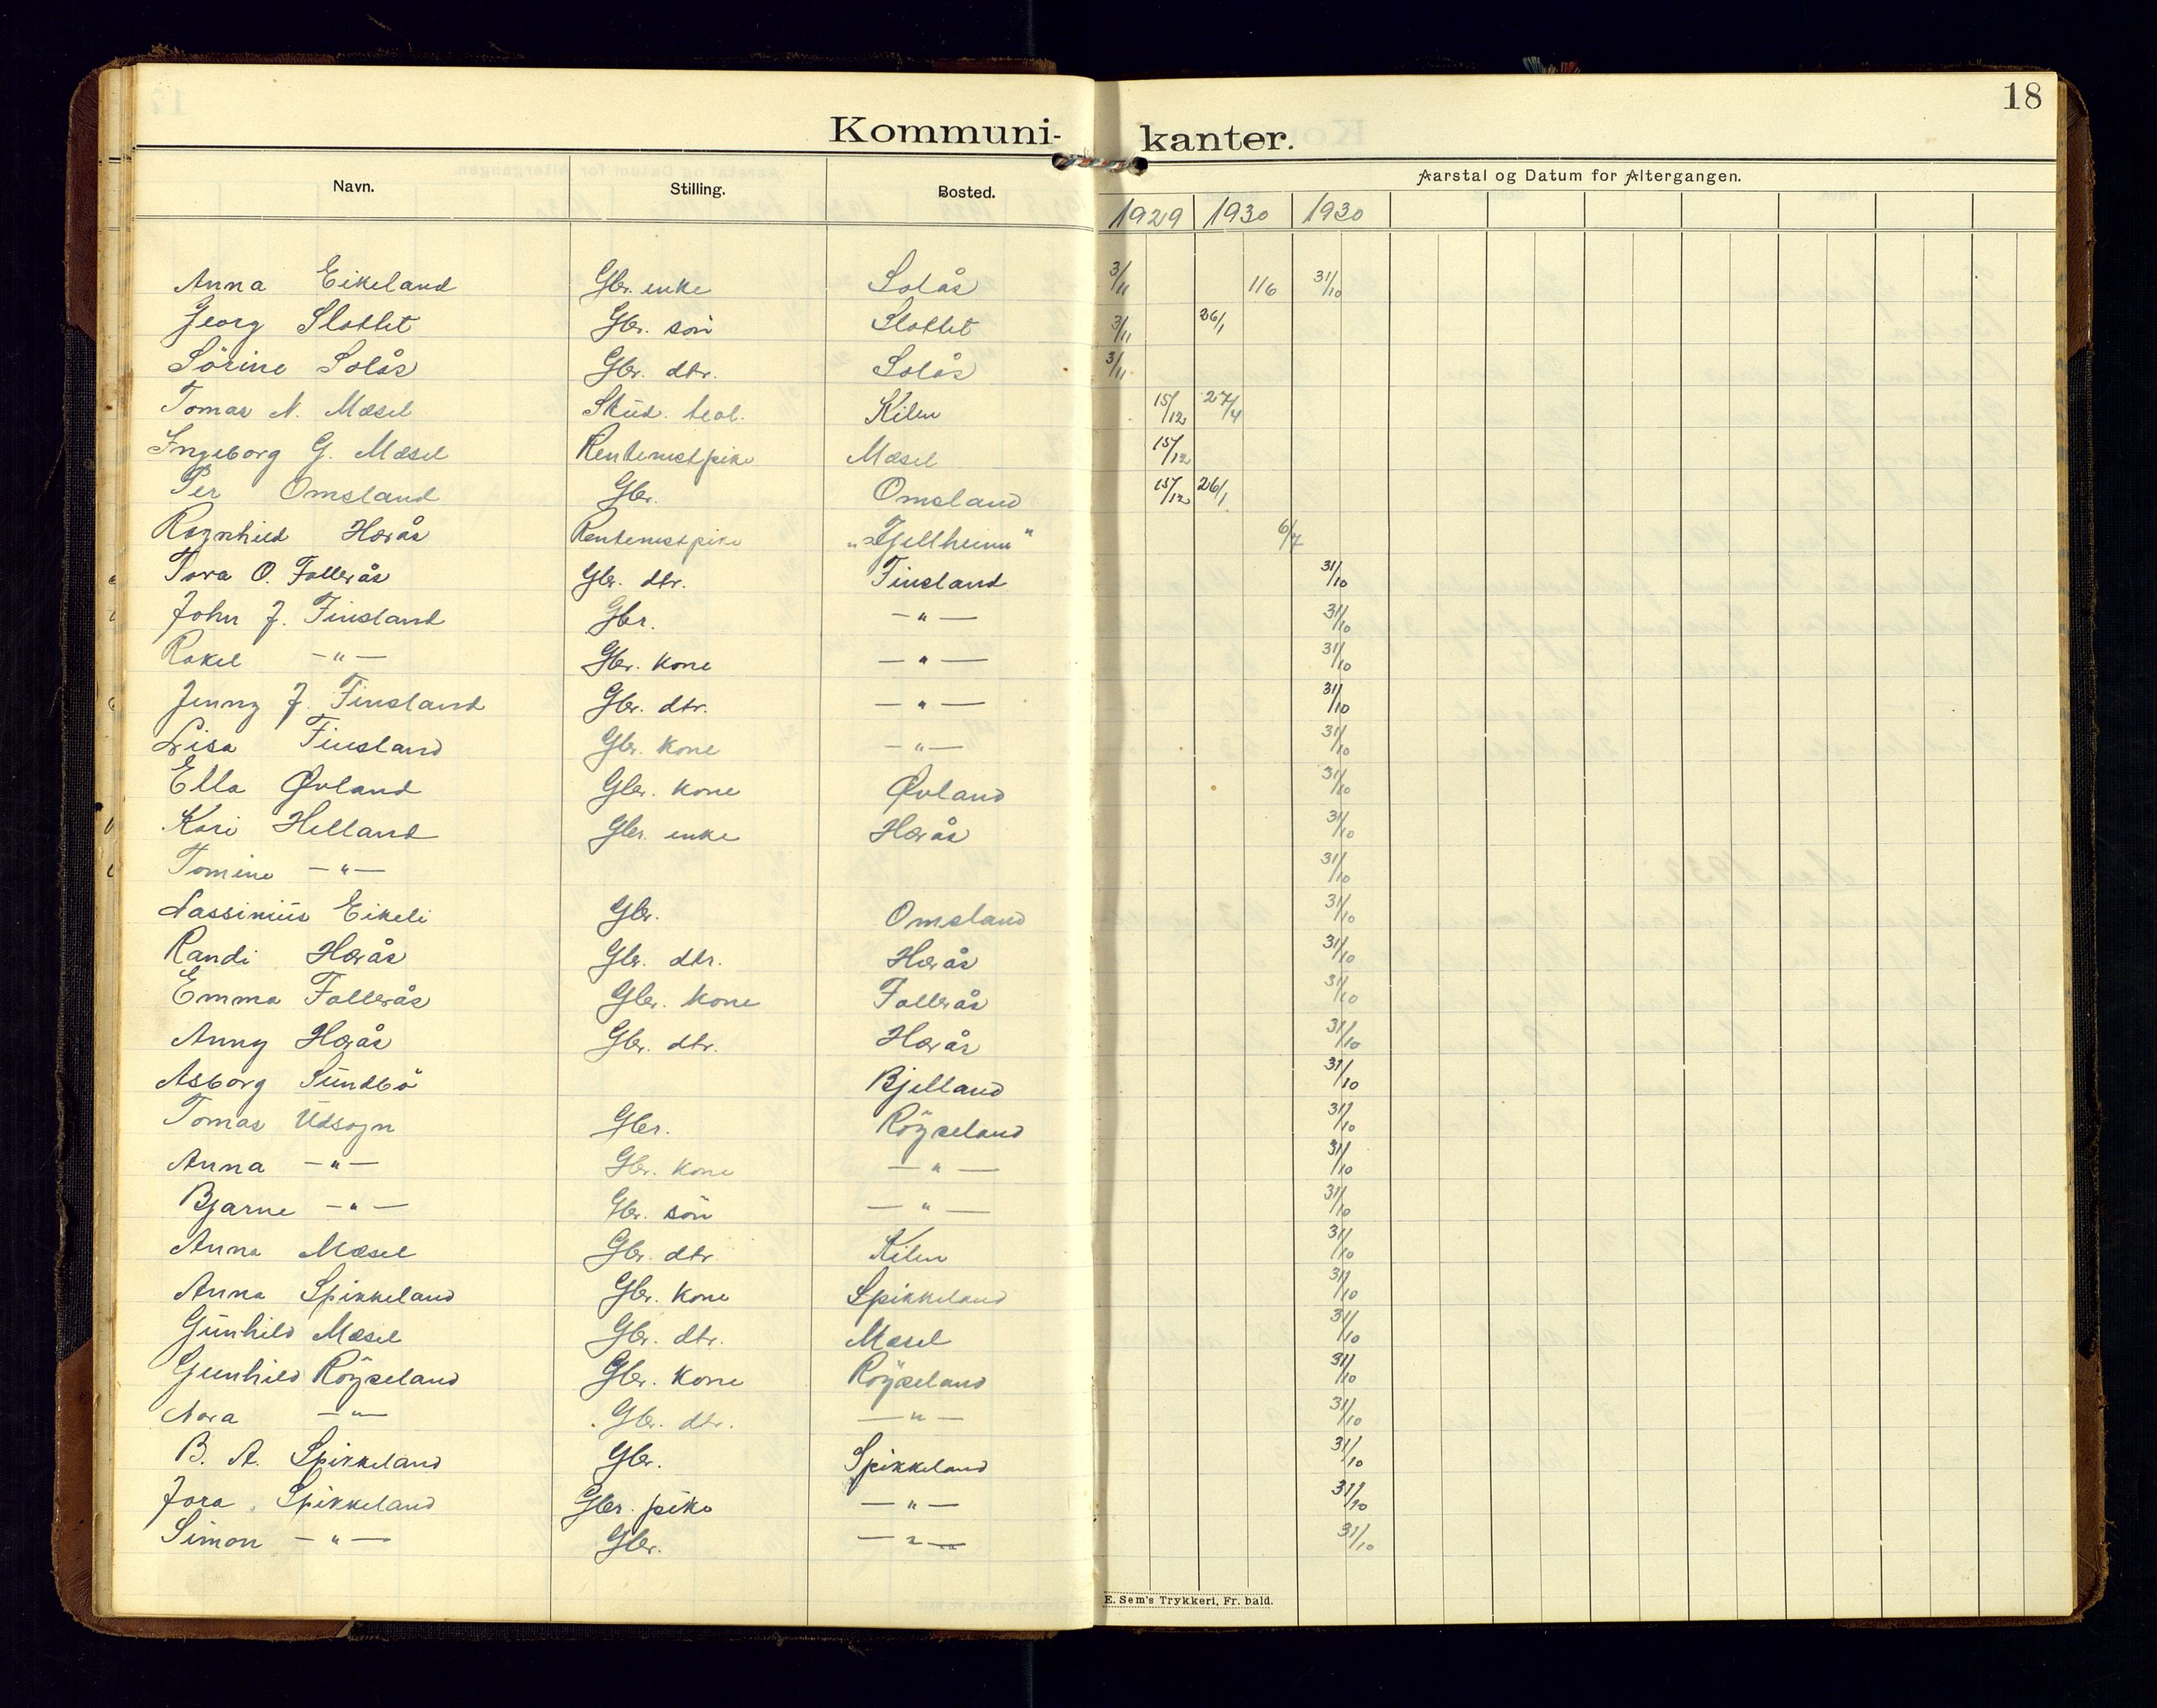 18
Kommuni-kanter.
Navn. Stilling. Bosted. Aarstal og Datum for Altergangen.
1929 1930 1930
Anna Eikeland Gbr. enke Solås 3/11 1/6 31/10
Georg Slottet Gbr. sön Slottet 3/11 26/1
Sörine Solås Gbr. dtr. Solås 3/11
Tomas N. Mæsel Stud. teol. Kilen 15/12 27/4
Ingeborg G. Mæsel Mæsel 15/12
Per Omsland Gbr. Omsland 15/12 26/1
Ragnhild Hærås "Fjellheim" 6/7
Tora O. Follerås Gbr. dtr. Finsland 31/10
John J. Finsland Gbr. — " — 31/10
Rakel — " — Gbr. kone — " — 31/10
Jenny J. Finsland Gbr. dtr. — " — 31/10
Lisa Finsland Gbr. kone — " — 31/10
Ella Øvland Gbr. kone Øvland 31/10
Kari Helland Gbr. enke Hærås 31/10
Tomine — " — 31/10
Lassinius Eikeli Gbr. Omsland 31/10
Randi Hærås Gbr. dtr. Hærås 31/10
Emma Follerås Gbr. kone Follerås 31/10
Anny Hærås Gbr. dtr. Hærås 31/10
Asborg Sundbö Bjelland 31/10
Tomas Udsogn Gbr. Röyseland 31/10
Anna — " — Gbr. kone — " — 31/10
Bjarne — " — Gbr. sön — " — 31/10
Anna Mæsel Gbr. dtr. Kilen 31/10
Anna Spikkeland Gbr. kone Spikkeland 31/10
Gunhild Mæsel Gbr. dtr. Mæsel 31/10
Gunhild Röyseland Gbr. kone Röyseland 31/10
Nora — " — Gbr. dtr. — " — 31/10
B. A. Spikkeland Gbr. Spikkeland 31/10
Jora Spikkeland Gbr. pike — " — 31/10
Simon — " — Gbr. — " — 31/10
E. Sem's Trykkeri, Fr.hald.